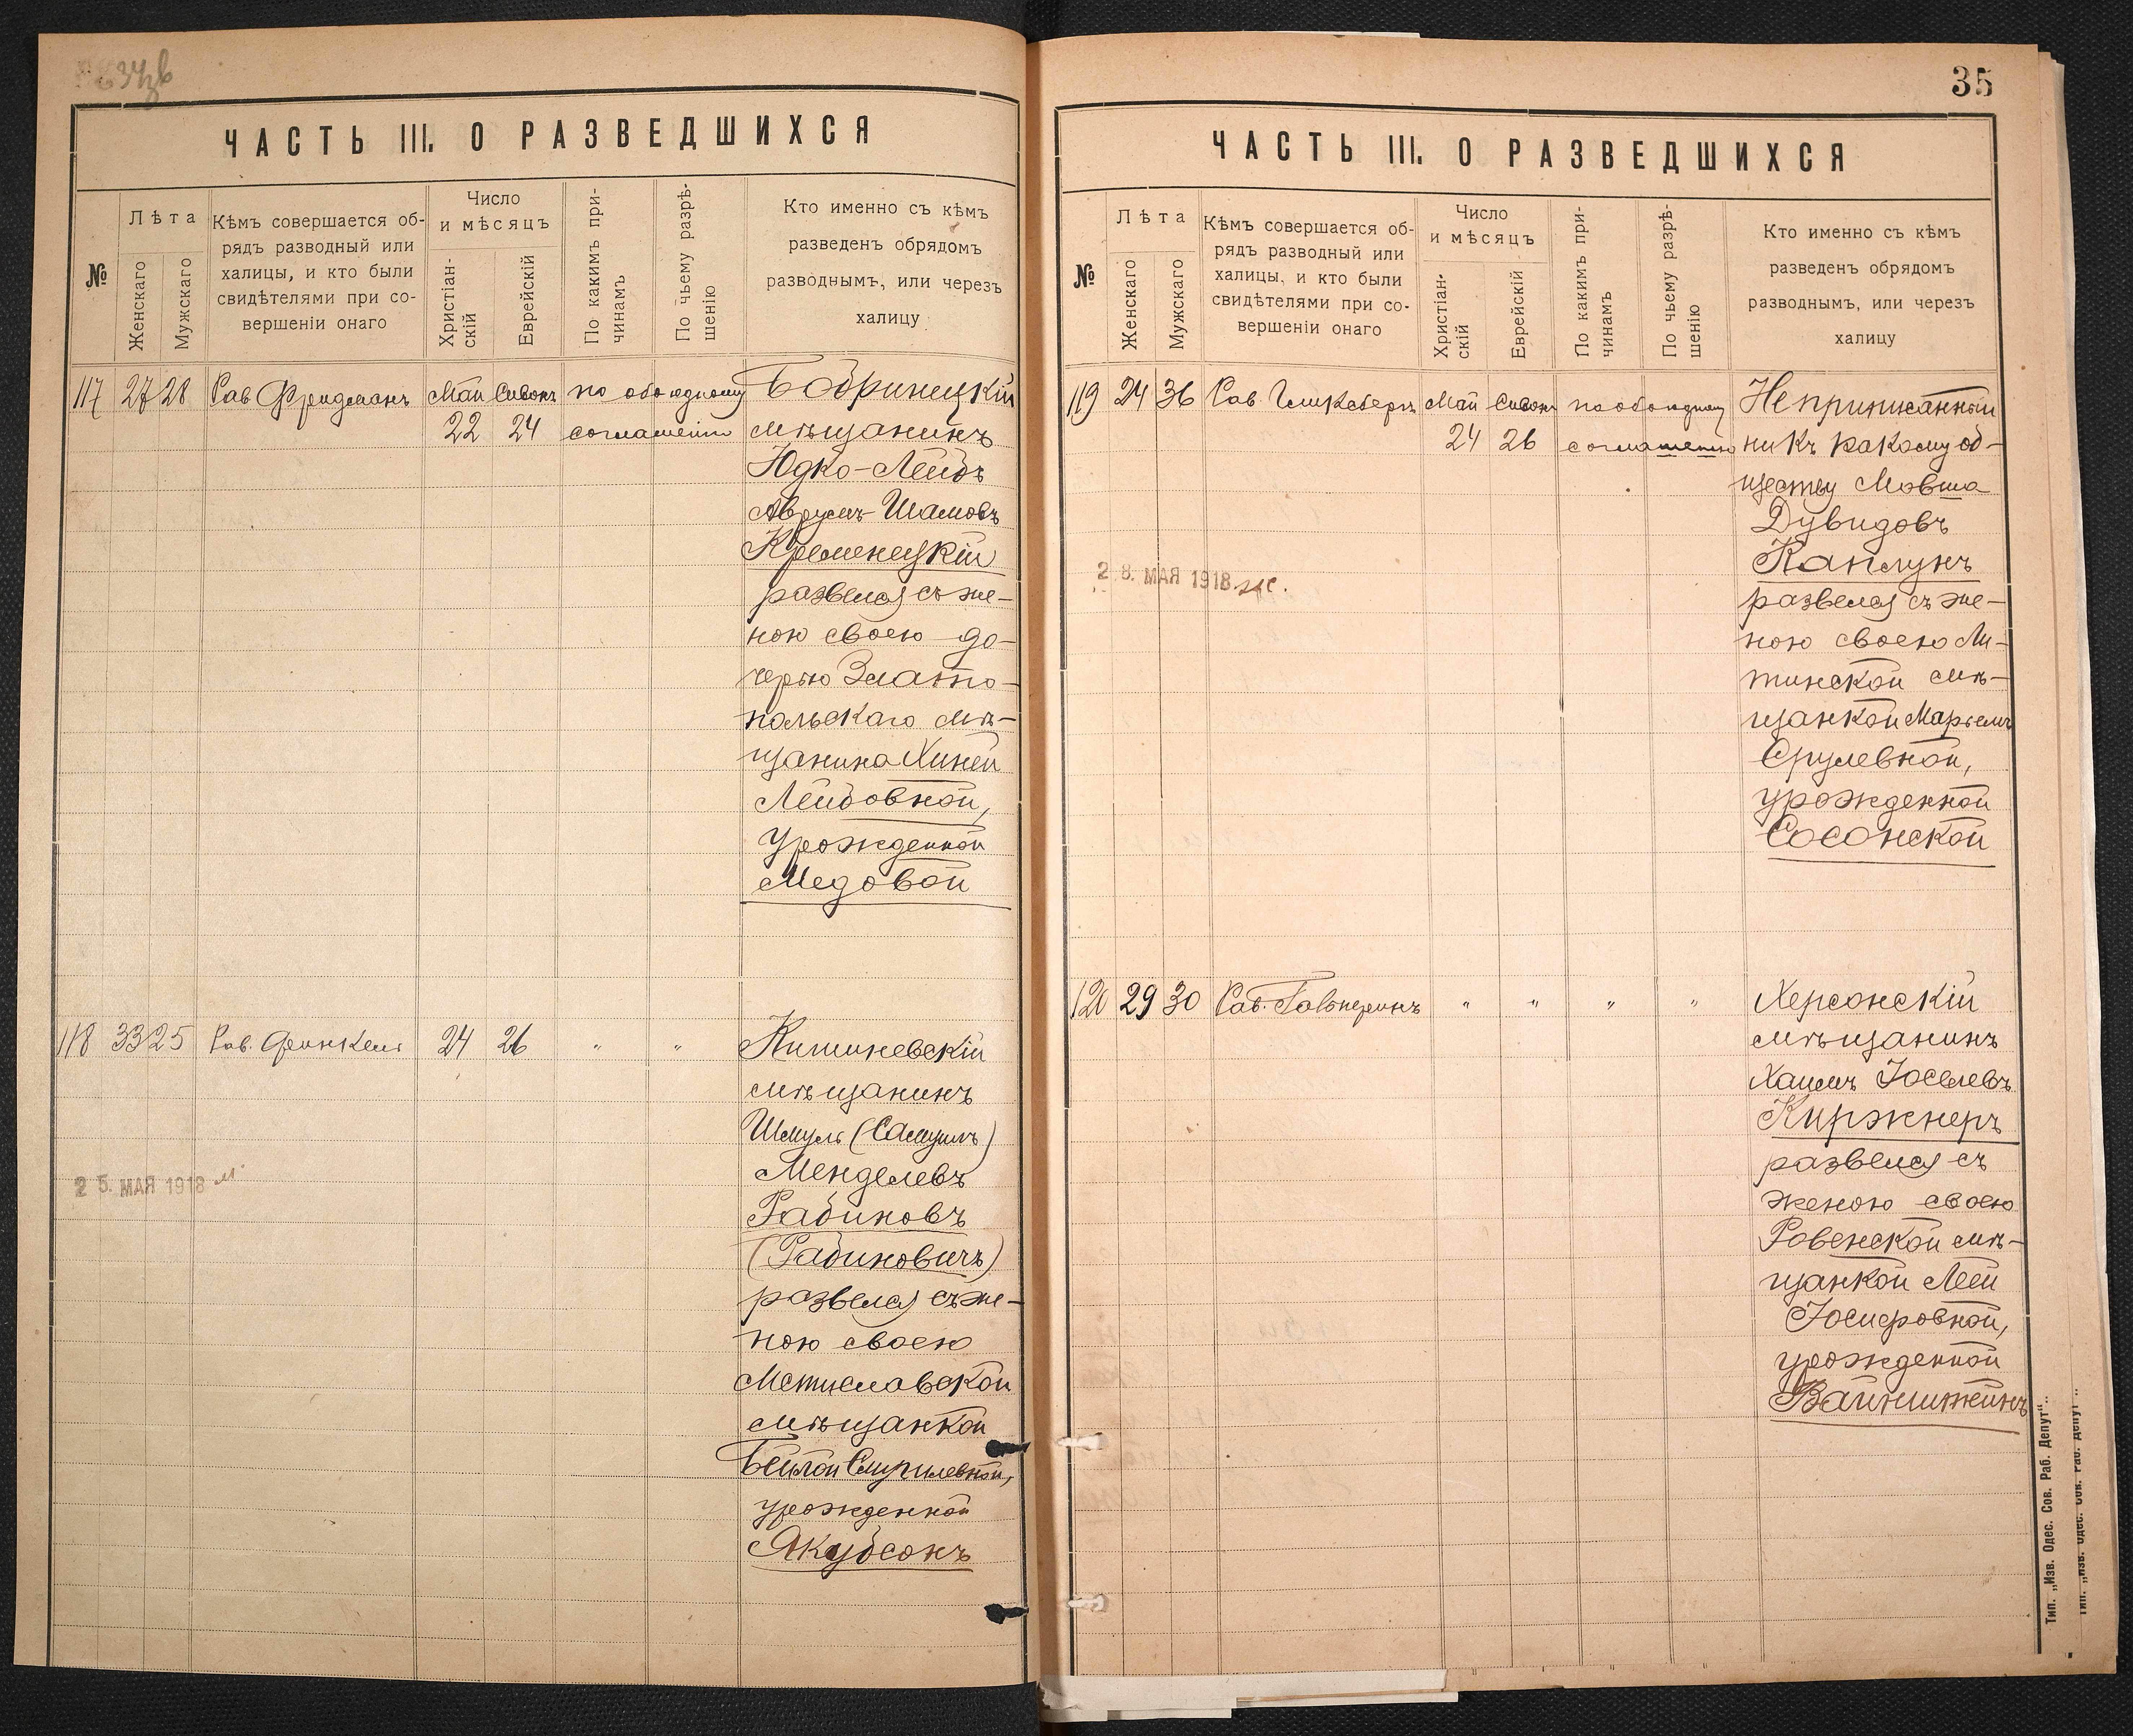 ЧАСТЬ III. О РАЗВЕДШИХСЯ
№
Лѣта
Женскаго
Мужскаго
Кѣмъ совершается об-
рядъ разводный или
халицы, и кто были
свидѣтелями при со-
вершеніи онаго
Число
и мѣсяцъ
Христіан-
скій
Еврейскій
По какимъ при-
чинамъ
По чьему разрѣ-
шенію
Кто именно съ кѣмъ
разведенъ обрядомъ
разводнымъ, или черезъ
халицу
117 27 28 Рав Фридманъ Май Сивонъ по обоюдному Бобринецкій
22 24 соглашенію мѣщанинъ
Юдко-Лейбъ
Аврумъ-Шамовъ
Кременецкій
развелся съ же-
ною своею до-
черью Злато-
польскаго мѣ-
щанина Хиней
Лейбовной,
урожденной
Медовой
118 33 25 Рав. Финкель 24 26 " " Кишиневскій
мѣщанинъ
Шмуль (Самуилъ)
Менделевъ
Рабиновъ
(Рабиновичъ)
25. МАЯ 1918
развелся съ же-
ною своею
Мстиславской
мѣщанкой
Бейлой Шмуилевной,
урожденной
Якубсонъ
35
ЧАСТЬ III. О РАЗВЕДШИХСЯ
№
Лѣта
Женскаго
Мужскаго
Кѣмъ совершается об-
рядъ разводный или
халицы, и кто были
свидѣтелями при со-
вершеніи онаго
Число
и мѣсяцъ
Христіан-
скій
Еврейскій
По какимъ при-
чинамъ
По чьему разрѣ-
шенію
Кто именно съ кѣмъ
разведенъ обрядомъ
разводнымъ, или черезъ
халицу
119 24 36 Рав. Гликсбергъ Май Сивонъ по обоюдному Неприписанный
24 26 соглашенію ни къ какому об-
ществу Мовша
Дувидовъ
Каплунъ
28. МАЯ 1918
развелся съ же-
ною своею Ли-
тинской мѣ-
щанкой Марьемъ
Срулевной,
урожденной
Сосонской
120 29 30 Рав. Гальперинъ " " " " Херсонскій
мѣщанинъ
Хаимъ Іоселевъ
Киржнеръ
развелся съ
женою своею
Ровенской мѣ-
щанкой Леей
Іосифовной,
урожденной
Вайнштейнъ
Тип. „Изв. Одес. Сов. Раб. Депут"..
Тип. „Изв. Одес. Сов. Раб. Депут"..